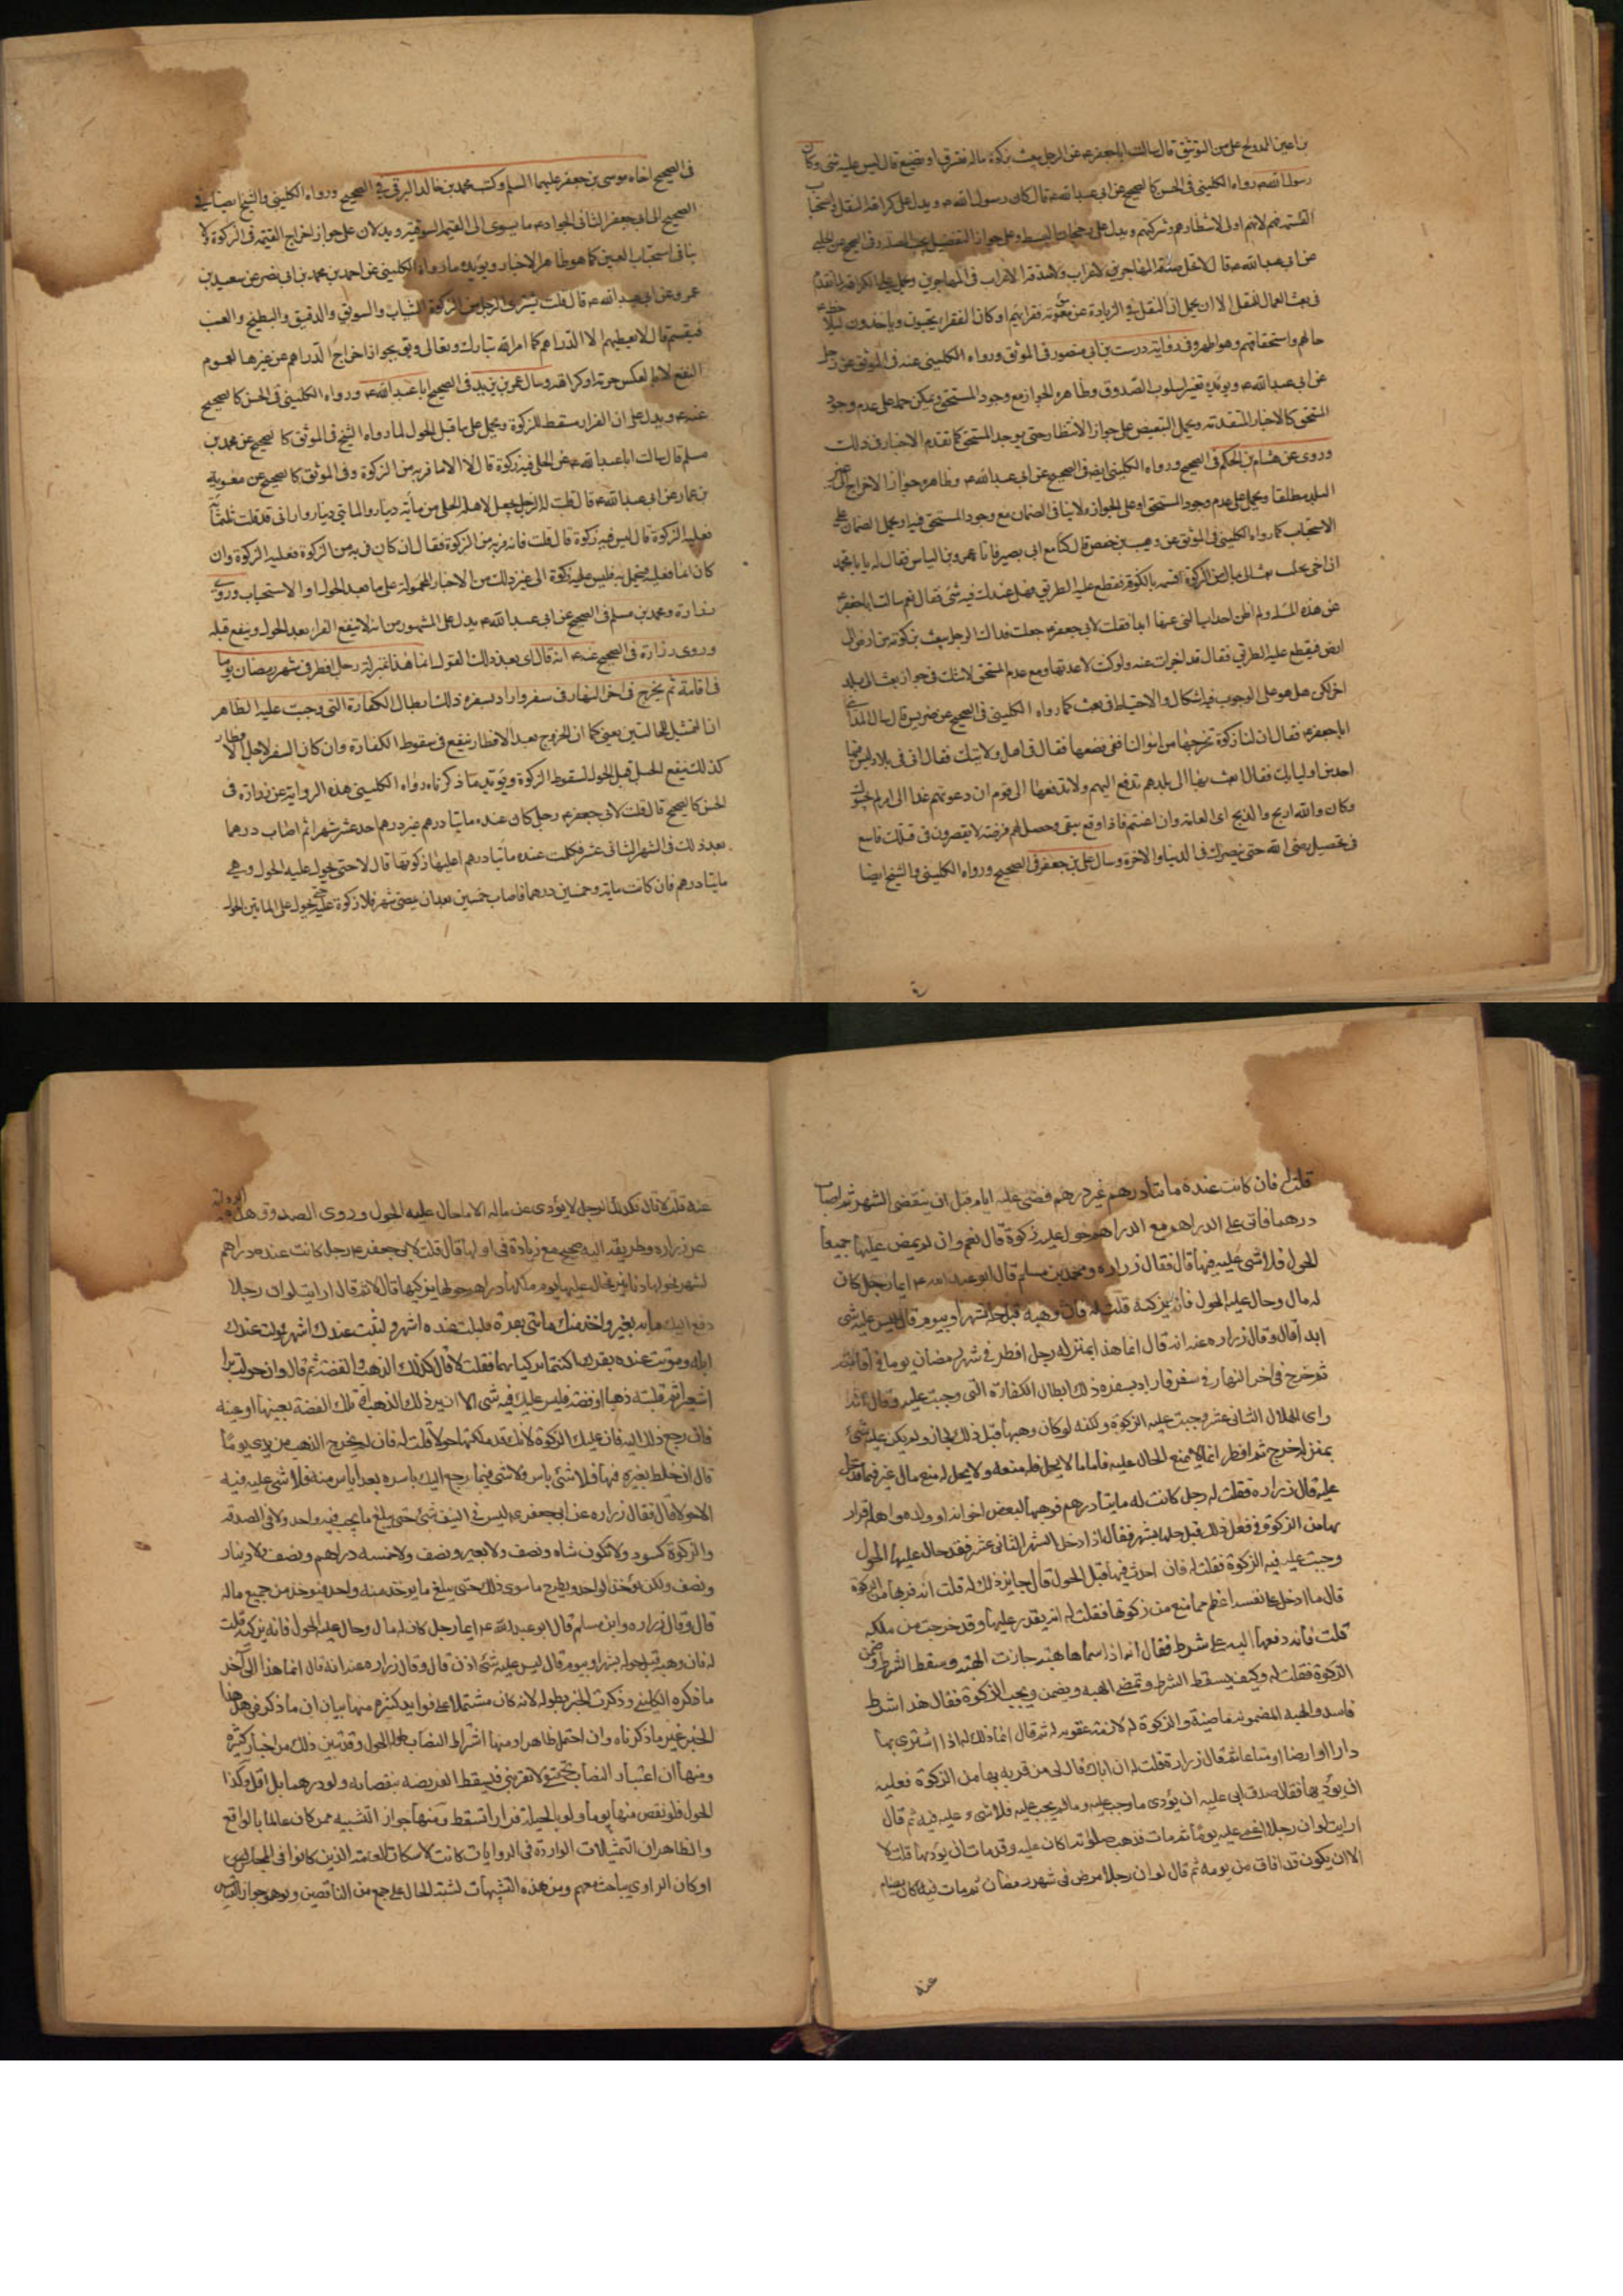 بن اعين الدولح على من التوثيق قال سالت اباجعفر ع عن الرجل يبعث بزكوة ماله فتسرق او تضيع قال ليس عليه شئ وكان
رسول الله ص رواه الكليني في الحسن كالصحيح عن ابي عبدالله ع قال كان رسول الله ص ويدل على كراهة النقل واستحباب
القسمة فيهم لانهم اولى لانتظارهم وشركتهم ويدل على رجحان البسط وعلى جواز التفضيل في الصحيح عن الحلبي
عن ابي عبدالله ع قال لا تحل صدقة المهاجرين للاعراب ولا صدقة الاعراب في المهاجرين
في بعث العمال للنقل الا ان يحمل ان النقل في الزيادة عن مؤنة فقرائهم او كان الفقراء يجيئون وياخذون ليلاحظ
حالهم واستحقاقهم وهو اظهر وفي رواية درست بن ابي منصور في الموثق ورواه الكليني عنه في الموثق عن رجل
عن ابي عبدالله ع ويؤيده تغيير اسلوب الصدوق وظاهره الجواز مع وجود المستحق ويمكن حمله على عدم وجود
المستحق كالاخبار المتقدمة ويحمل التبعيض على جواز الانتظار حتى يوجد المستحق كما تقدم الاخبار في ذلك
وروى عن هشام بن الحكم في الصحيح ورواه الكليني ايضا في الصحيح عن ابي عبدالله ع وظاهره جواز الاخراج الى غير
البلد مطلقا ويحمل على عدم وجود المستحق او على الجواز ولا ينافي الضمان مع وجود المستحق فيه او يحمل الضمان على
الاستحباب كما رواه الكليني في الموثق عن وهيب بن حفص قال كنا مع ابي بصير فاتاه عمرو بن الياس فقال له يا ابا محمد
ان اخي بحلب بعث الى بمال من الزكوة اقسمه بالكوفة فقطع عليه الطريق فهل عندك فيه شئ فقال نعم سالت اباجعفر ع
عن هذه المسئلة ولم اظن احدا يسالني عنها ابدا فقلت لابي جعفر ع جعلت فداك الرجل يبعث بزكوته من ارض الى
ارض فيقطع عليه الطريق فقال قد اجزات عنه ولو كنت انا لاعدتها ومع عدم المستحق لا شك في جواز بعث الى بلد
اخر لكن هل هو على الوجوب فيه اشكال والاحتياط في بعث كما رواه الكليني في الصحيح عن ضريس قال سال المدائني
اباجعفر ع فقال ان لنا زكوة نخرجها من اموالنا ففي من نضعها فقال في اهل ولايتك فقال اني في بلاد ليس فيها
احد من اوليائك فقال ابعث بها الى بلدهم تدفع اليهم ولا تدفعها الى قوم ان دعوتهم غدا الى امرك لم يجيبوك
وكان والله الذبح والذبح اي العامة وان اغتنم فاذا وقع سيق وحصل لهم فرصة لا يقصرون في قتلك فاسع
في تحصيل رضى الله حتى ينصرك في الدنيا والاخرة وسال علي بن جعفر في الصحيح ورواه الكليني والشيخ ايضا
في الصحيح اخاه موسى بن جعفر عليهما السلم وكتب محمد بن خالد البرقي في الصحيح ورواه الكليني والشيخ ايضا في
الصحيح الى ابي جعفر الثاني الجواد ع ما يسوى اي القيمة السوقية ويدلان على جواز اخراج القيمة في الزكوة ولا
ينافي استحباب العين كما هو ظاهر الاخبار ويؤيده ما رواه الكليني عن احمد بن محمد بن ابي نصر عن سعيد بن
عمرو عن ابي عبدالله ع قال قلت يشترى الرجل من الزكوة الثياب والسويق والدقيق والبطيخ والعنب
فيقسمه قال لا يعطيهم الا الدراهم كما امر الله تبارك وتعالى وبقى بجواز اخراج الدراهم عن غيرها لعموم
النفع لا بالعكس حرمة او كراهة وسال عمر بن يزيد في الصحيح اباعبدالله ع ورواه الكليني في الحسن كالصحيح
عنه ع ويدل على ان الفرار مسقط للزكوة ويحمل على ما قبل الحول لما رواه الشيخ في الموثق كالصحيح عن محمد بن
مسلم قال سالت اباعبدالله ع عن الحلي فيه زكوة قال لا الا ما فر به من الزكوة وفي الموثق كالصحيح عن معوية
بن عمار عن ابي عبدالله ع قال قلت له الرجل يجعل لاهله الحلي من مائة دينار والمائتي دينار واراني قد قلت ثلثمائة
فعليه الزكوة قال ليس فيه زكوة قال قلت فانه فر به من الزكوة فقال ان كان فر به من الزكوة فعليه الزكوة وان
كان انما فعله ليتجمل به فليس عليه زكوة الى غير ذلك من الاخبار المحمولة على ما بعد الحول او الاستحباب وروى
زرارة ومحمد بن مسلم في الصحيح عن ابي عبدالله ع يدل على المشهور من انه لا ينفع الفرار بعد الحول وينفع قبله
وروى زرارة في الصحيح عنه ع انه قال اي بعد ذلك القول انما هذا بمنزلة رجل افطر في شهر رمضان يوما
في اقامته ثم يخرج في اخر النهار في سفر واراد بسفره ذلك ابطال الكفارة التي وجبت عليه الظاهر
ان التمثيل للحالتين يعني كما ان الخروج بعد الافطار ينفع في سقوط الكفارة وان كان السفر لاجل الافطار
كذلك ينفع الحيل قبل الحول لسقوط الزكوة ويؤيد ما ذكرناه رواه الكليني هذه الرواية عن زرارة في
الحسن كالصحيح قال قلت لابي جعفر ع رجل كان عنده مائتا درهم غير درهم احد عشر شهرا ثم اصاب درهما
بعد ذلك في الشهر الثاني عشر فكملت عنده مائتا درهم اعليه زكوتها قال لا حتى يحول عليه الحول وهي
مائتا درهم فان كانت مائة وخمسين درهما فاصاب خمسين بعد ان يمضي شهر فلا زكوة عليه حتى يحول على المائتين الحول
قلت له فان كانت عنده مائتا درهم غير درهم فمضى عليه ايام قبل ان ينقضي الشهر ثم اصاب
درهما فاتى على الدراهم مع الدرهم حول اعليه زكوة قال نعم وان لم يمض عليها جميعا
الحول فلا شئ عليه فيها قال فقال زراره ومحمد بن مسلم قال ابو عبد الله ع ايما رجل كان
له مال وحال عليه الحول فانه يزكيه قلت له فان وهبه قبل حله بشهر او بيوم قال ليس عليه شئ
ابدا قال وقال زراره عنه انه قال انما هذا بمنزله رجل افطر في شهر رمضان يوما في اقامته
ثم خرج في اخر النهار في سفر فاراد بسفره ذلك ابطال الكفارة التي وجبت عليه وقال انه
راى الهلال الثاني عشر وجبت عليه الزكوة ولكنه لو كان وهبها قبل ذلك لجاز ولم يكن عليه شئ
بمنزله من خرج ثم افطر انما لا يمنع الحال عليه فاما ما لا يحل فله منعه ولا يحل له منع مال غيره فيما قد حل
عليه قال زراره فقلت له رجل كانت له مايتا درهم فوهبها لبعض اخوانه او ولده او اهله فرارا
بها من الزكوة فعل ذلك قبل حلها بشهر فقال اذا دخل الشهر الثاني عشر فقد حال عليها الحول
وجبت عليه فيه الزكوة فقلت له فان احدث فيها قبل الحول قال جايز ذلك له قلت انه فر بها من الزكوة
قال ما ادخل على نفسه اعظم مما منع من زكوتها فقلت له انه يقدر عليها وقد خرجت من ملكه
قلت فانه دفعها اليه على شرط فقال انه اذا سماها هبه جازت الهبه وسقط الشرط وضمن
الزكوة فقلت له وكيف يسقط الشرط وتمضي الهبه ويضمن ويجب الزكوة فقال هذا شرط
فاسد والهبه المضمونه ماضيه والزكوة له لازمه عقوبه له ثم قال انما ذلك له اذا اشترى بها
دارا او ارضا او متاعا ثم قال زراره قلت له ان اباك قال لي من فر به بها من الزكوة فعليه
ان يؤديها فقال صدق ابي عليه ان يؤدي ما وجب عليه وما لم يجب عليه فلا شئ عليه فيه ثم قال
ارايت لو ان رجلا اغمي عليه يوما ثم مات فذهبت صلوته اكان عليه وقد مات ان يؤديها قلت لا
الا ان يكون قد افاق من يومه ثم قال لو ان رجلا مرض في شهر رمضان ثم مات فيه اكان يصام
عنه
عنه قلت لا قال فكذلك الرجل لا يؤدي عن ماله الا ما حال عليه الحول وروى الصدوق هذه الروايه
عن زراره وطريقه اليه صحيح مع زيادة في اولها قال قلت لابي جعفر ع رجل كانت عنده دراهم
اشهرا فحولها دنانير فحال عليها يوم ملكها دراهم حولها ايزكيها قال لا ثم قال ارايت لو ان رجلا
دفع اليك مائه بعير واخذ منك مائتي بقرة فلبثت عنده اشهر ولبثت عندك اشهر فموتت عندك
ابله وموتت عنده بقرك اكنتما تزكيانهما فقلت لا قال كذلك الذهب والفضة ثم قال وان حولت برا
او شعيرا ثم قلبته ذهبا او فضه فليس عليك فيه شئ الا ان يرد ذلك الذهب او تلك الفضة بعينها او عينه
فان رجع ذلك اليه فان عليك الزكوة لانك قد ملكتها حولا قلت له فان لم يخرج الذهب من يدي يوما
قال ان خلط بغيره فيها فلا باس ولا شئ فيما رجع اليك باسره بعد اياس منه فلا شئ عليه فيه
الا حولا قال فقال زراره عن ابي جعفر ع ليس في النيف شئ حتى يبلغ ما يجب فيه واحد ولا في الصدقه
والزكوة كسور ولا تكون شاه ونصف ولا بعير ونصف ولا خمسه دراهم ونصف ولا دينار
ونصف ولكن يؤخذ الواحد ويطرح ما سوى ذلك حتى يبلغ ما يؤخذ منه واحد فيؤخذ من جميع ماله
قال وقال زراره وابن مسلم قال ابو عبد الله ع ايما رجل كان له مال وحال عليه الحول فانه يزكيه قلت
له فان وهبه قبل حوله بشهر او بيوم قال ليس عليه شئ اذن قال وقال زراره عنه انه قال انما هذا الى آخر
ما ذكره الكليني وذكرت الخبر بطوله لانه كان مشتملا على فوايد كثيره منها بيان ان ما ذكر في هذا
الخبر غير ما ذكرناه وان احتمل ظاهرا ومنها اشتراط النصاب طول الحول وقد تبين ذلك من اخبار كثيره
ومنها ان اعتبار النصاب تحقيقي لا تقريبي فيسقط الفريضه بنقصانه ولو درهما بل اقل وكذا
الحول فلو نقص منها يوما ولو بالحيلة فرارا تسقط ومنها جواز التشبيه ممن كان عالما بالواقع
والظاهر ان التمثيلات الواردة في الروايات كانت لاسكات العامه الذين كانوا في المجالس
او كان الراوي يباحث معهم ومن هذه التشبيهات لشبه الحال على جمع من الناقصين وتوهم جواز القياس